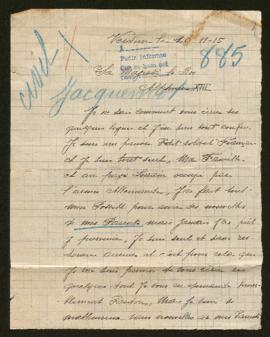 Verdun le 20 11-15
A
Pedir informes
885
civil
Sa Majesté le Roi
Alphonse XIII
Jacquemot
Je ne sais comment vous écrire ces
quelques lignes et j'en suis tout confus.
Je suis un pauvre Petit soldat Français
et Je suis tout seul, Ma Famille
est au pays Lorrain occupé par
l'armée Allemande, J'ai fait tout
mon Possible pour avoir des nouvelles
de mes Parents mais jamais j'ai puis
y parvenir. Je suis seul et sans res
source aucune et c'est pour cela que
Je me suis permis de vous écrire ces
quelques mots Je vous en demande
Pardon, Mais Je suis si
malheureux sans nouvelles de mes Parents